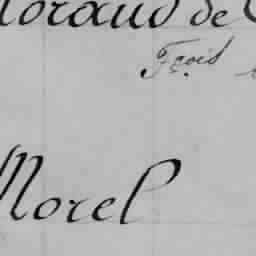 Moraud de
Fçois
Morel